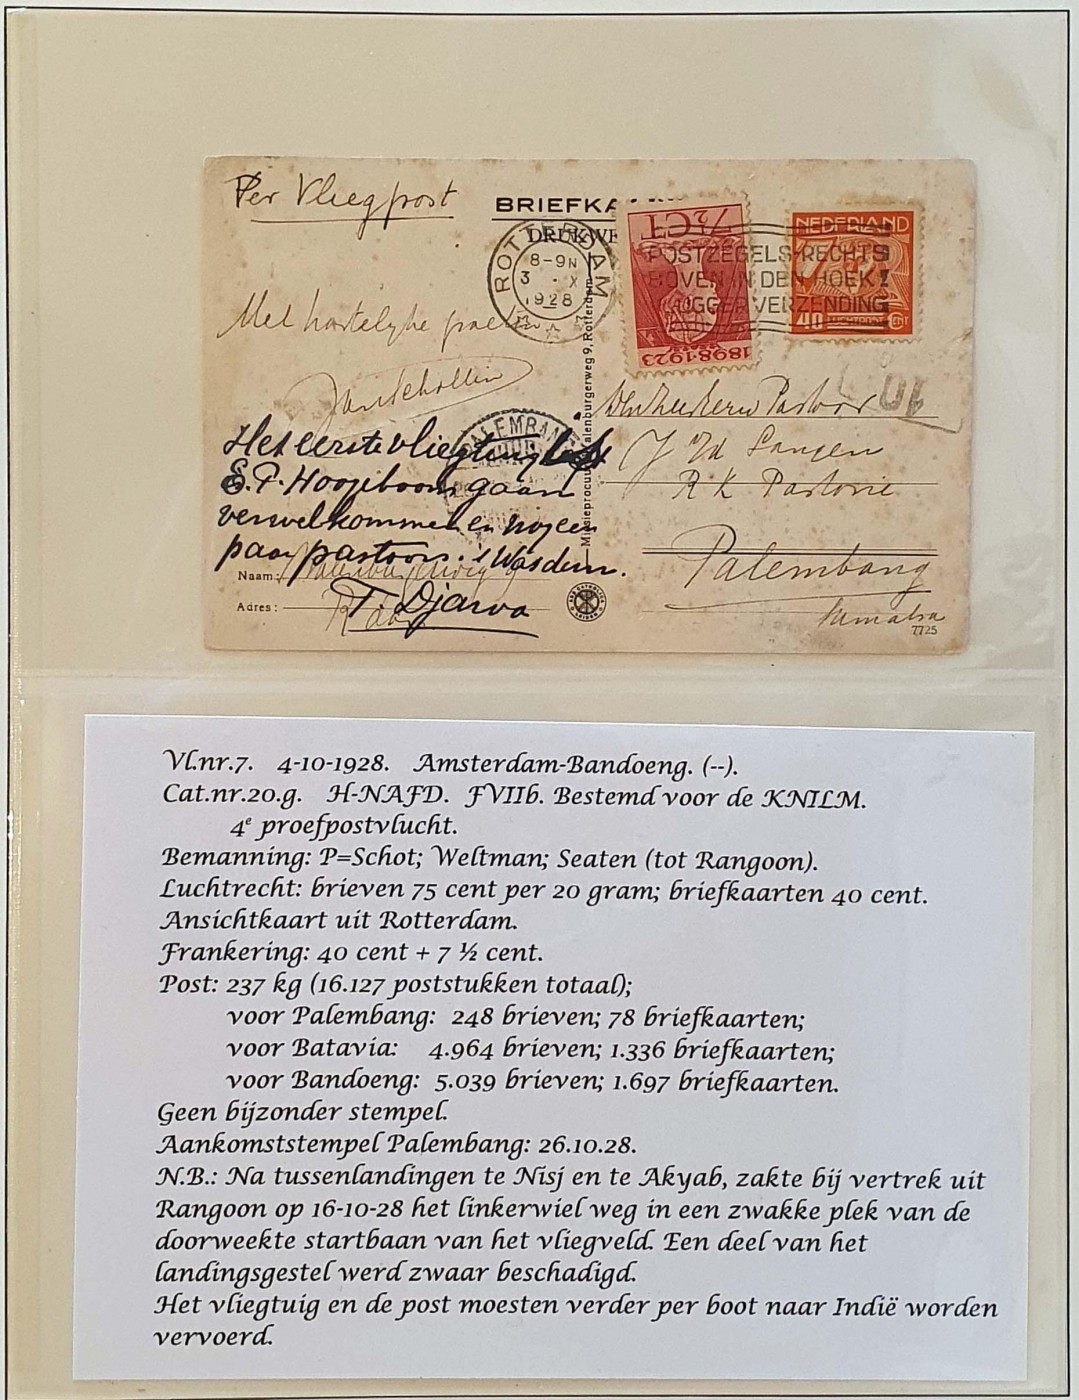 Per Vliegpost
BRIEFKA
DRUKWE
ROTTERDAM
8-9N
3 X
1928
7½CT
1898·1923
NEDERLAND
40
POSTZEGELS RECHTS
BOVEN IN DEN HOEK!
VERZENDING
Met hartelijke groeten
PALEMBANG
Het eerste vliegtuig
E.P. Hoogeboom gaan
verwelkommen en nog een
paar pastoors.
T. Djawa
Pastoor
J v/d Sangen
R K Pastorie
Palembang
Sumatra
7725
Naam:
Adres:
Missieprocuur Valenburgerweg 9, Rotterdam
Vl.nr.7. 4-10-1928. Amsterdam-Bandoeng. (--).
Cat.nr.20.g. H-NAFD. FVIIb. Bestemd voor de KNILM.
4e proefpostvlucht.
Bemanning: P=Schot; Weltman; Seaten (tot Rangoon).
Luchtrecht: brieven 75 cent per 20 gram; briefkaarten 40 cent.
Ansichtkaart uit Rotterdam.
Frankering: 40 cent + 7 ½ cent.
Post: 237 kg (16.127 poststukken totaal);
voor Palembang: 248 brieven; 78 briefkaarten;
voor Batavia: 4.964 brieven; 1.336 briefkaarten;
voor Bandoeng: 5.039 brieven; 1.697 briefkaarten.
Geen bijzonder stempel.
Aankomststempel Palembang: 26.10.28.
N.B.: Na tussenlandingen te Nisj en te Akyab, zakte bij vertrek uit
Rangoon op 16-10-28 het linkerwiel weg in een zwakke plek van de
doorweekte startbaan van het vliegveld. Een deel van het
landingsgestel werd zwaar beschadigd.
Het vliegtuig en de post moesten verder per boot naar Indië worden
vervoerd.